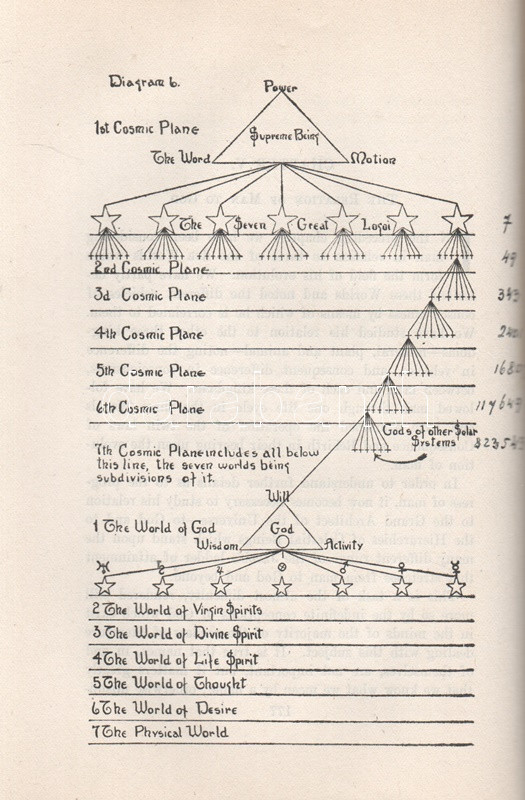 Diagram 6.
Power
1st Cosmic Plane
Supreme Being
The Word
Motion
The Seven Great Logoi
7
2nd Cosmic Plane
49
3d Cosmic Plane
343
4th Cosmic Plane
5th Cosmic Plane
6th Cosmic Plane
117649
Gods of other Solar
Systems
823543
7th Cosmic Plane includes all below
this line, the seven worlds being
subdivisions of it.
Will
1 The World of God
God
Wisdom
Activity
♅ ♄ ♃ ⊗ ♂ ♀ ☿
2 The World of Virgin Spirits
3 The World of Divine Spirit
4 The World of Life Spirit
5 The World of Thought
6 The World of Desire
7 The Physical World
177